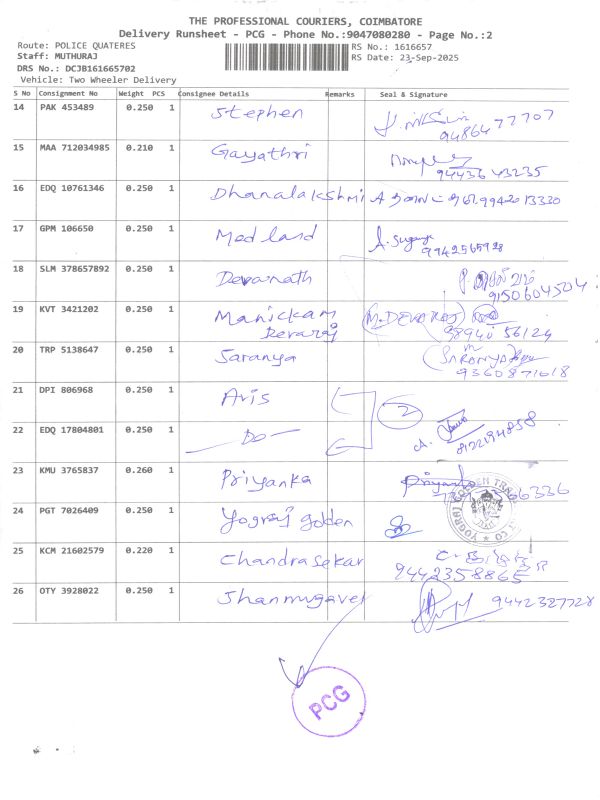 THE PROFESSIONAL COURIERS, COIMBATORE
Delivery Runsheet - PCG - Phone No.:9047080280 - Page No.:2
Route: POLICE QUATERES RS No.: 1616657
Staff: MUTHURAJ RS Date: 23-Sep-2025
DRS No.: DCJB161665702
Vehicle: Two Wheeler Delivery
S No Consignment No Weight PCS Consignee Details Remarks Seal & Signature
14 PAK 453489 0.250 1 Stephen
9486477707
15 MAA 712034985 0.210 1 Gayathri
9443643235
16 EDQ 10761346 0.250 1 Dhanalakshmi 9942013330
17 GPM 106650 0.250 1 Med land A. Suganya
9942565928
18 SLM 378657892 0.250 1 Devanath
9150604504
19 KVT 3421202 0.250 1 Manickam M. DEVARAJ
Devaraj 9894056124
20 TRP 5138647 0.250 1 Saranya SARANYA
9360871618
21 DPI 806968 0.250 1 Aris 2
22 EDQ 17804801 0.250 1 — Do — A.
8122194858
23 KMU 3765837 0.260 1 Priyanka Priyanka
66336
24 PGT 7026409 0.250 1 Yograj golden
25 KCM 21602579 0.220 1 Chandrasekar
9442358865
26 OTY 3928022 0.250 1 Shanmugavel 9442327728
PCG